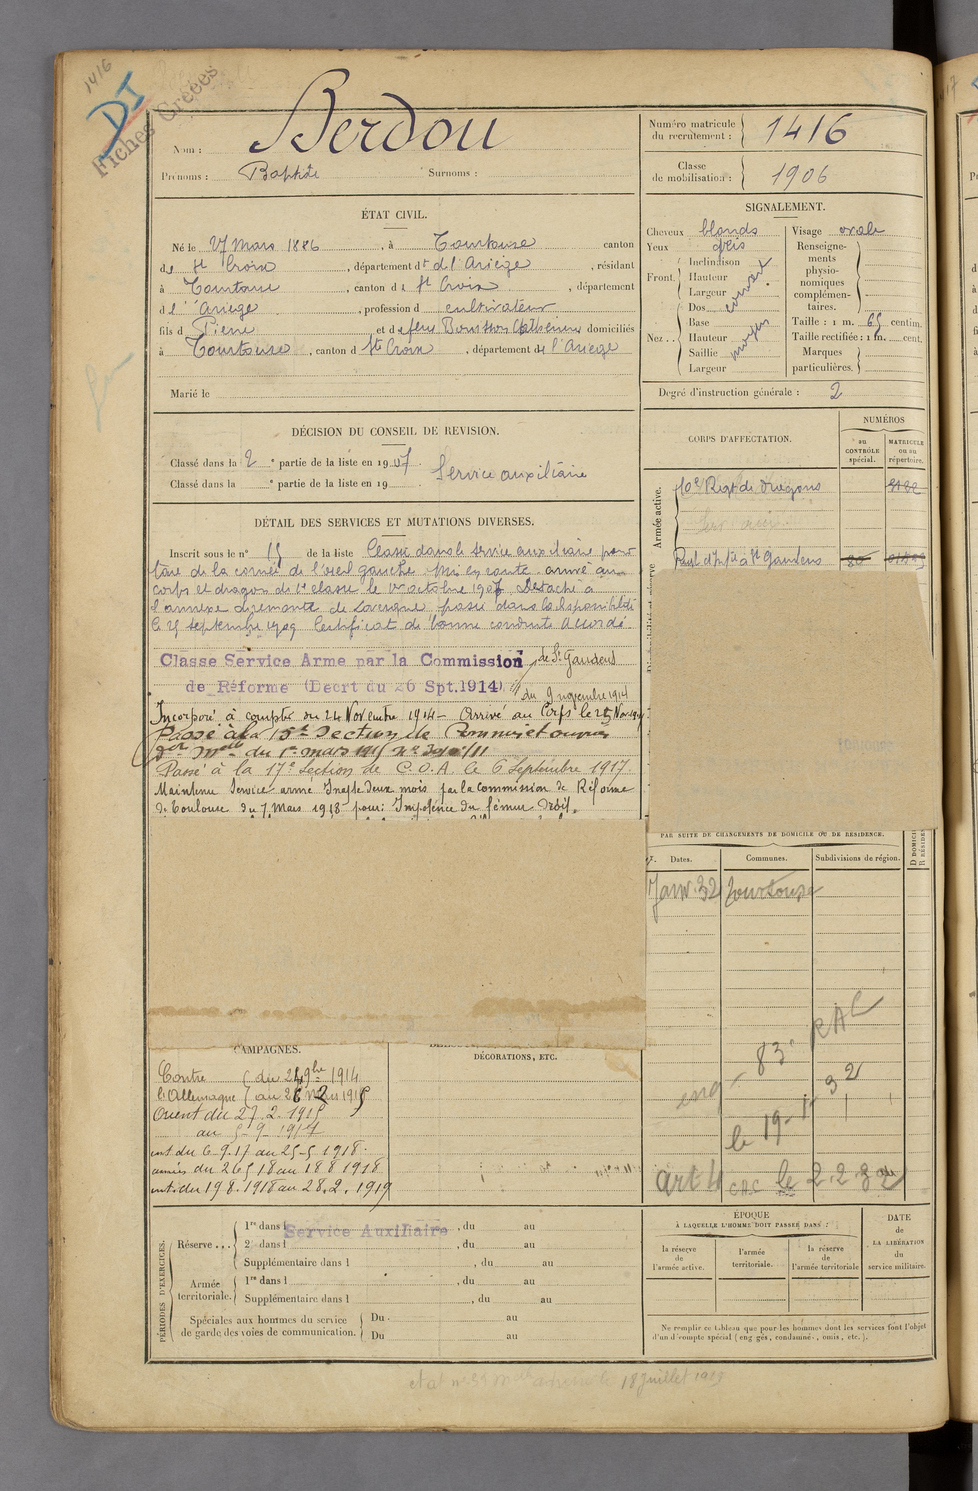 1416
DI
Fiches Créées
Nom : Berdou
Prénoms : Baptiste Surnoms :
Numéro matricule du recrutement : 1416
Classe de mobilisation : 1906
ÉTAT CIVIL.
Né le 27 Mars 1886, à Tourtouse canton
de Ste Croix, département de l'Ariège, résidant
à Tourtouse, canton de Ste Croix, département
de l'Ariège, profession de cultivateur
fils de Pierre et de feue Catherine domiciliés
à Tourtouse, canton de Ste Croix, département de l'Ariège
Marié le
SIGNALEMENT.
Cheveux blonds
Yeux gris
Front. Inclinaison
Hauteur
Largeur
couvert
Nez... Dos
Base
Hauteur
Saillie
Largeur
moyen
Visage ovale
Renseignements physionomiques complémentaires.
Taille : 1 m. 65 centim.
Taille rectifiée : 1 m. cent.
Marques particulières.
Degré d'instruction générale : 2
DÉCISION DU CONSEIL DE REVISION.
Classé dans la 2e partie de la liste en 1907
Classé dans la e partie de la liste en 19
Service auxiliaire
CORPS D'AFFECTATION.
NUMÉROS
au CONTRÔLE spécial.
MATRICULE ou au répertoire.
Armée active.
10e Régt de dragons
Rect d'Infie à St Gaudens
DÉTAIL DES SERVICES ET MUTATIONS DIVERSES.
Inscrit sous le n° 15 de la liste Classé dans le service auxiliaire pour
taie de la cornée de l'œil gauche. Mis en route. arrivé au
corps et dragon de 2e classe le 1er octobre 1907. Détaché à
l'annexe de remonte de Lavergne. passé dans la disponibilité
le 25 septembre 1909 Certificat de bonne conduite accordé.
Classe Service Armé par la Commission de St Gaudens
de Réforme (Decrt du 26 Spt.1914) du 9 novembre 1914
Incorporé à compter du 24 Novembre 1914 - Arrivé au Corps le 25 Nov 1914
Passé à la 15e Section de Commis et ouvriers
du 1er mars 1915
Passé à la 17e Section de C.O.A. le 6 Septembre 1917.
Maintenu Service armé Inapte deux mois par la Commission de Réforme
de Toulouse du 7 Mars 1918 pour : Impotence du fémur droit.
PAR SUITE DE CHANGEMENTS DE DOMICILE OU DE RÉSIDENCE.
Dates. Communes. Subdivisions de région.
7 Janv. 32 Tourtouse
83e RAL
le 19-1-32
art 4 le 2.2.32
CAMPAGNES.
DÉCORATIONS, ETC.
Contre du 24 9bre 1914
l'Allemagne au 26 2 1915
Orient du 27.2.1915
au 5-9-1917
int. du 6.9.17 au 25-5 1918.
armées du 26 5 18 au 18 8 1918
int. du 19 8.1918 au 28.2.1919
PÉRIODES D'EXERCICES.
Réserve... 1re dans l , du au
Service Auxiliaire
2e dans l , du au
Supplémentaire dans l , du au
Armée territoriale. 1re dans l , du au
Supplémentaire dans l , du au
Spéciales aux hommes du service de garde des voies de communication. Du au
Du au
ÉPOQUE
À LAQUELLE L'HOMME DOIT PASSER DANS :
la réserve de l'armée active.
l'armée territoriale.
la réserve de l'armée territoriale
DATE de LA LIBÉRATION du service militaire.
Ne remplir ce tableau que pour les hommes dont les services font l'objet
d'un décompte spécial (engagés, condamnés, omis, etc.).
18 juillet 1919